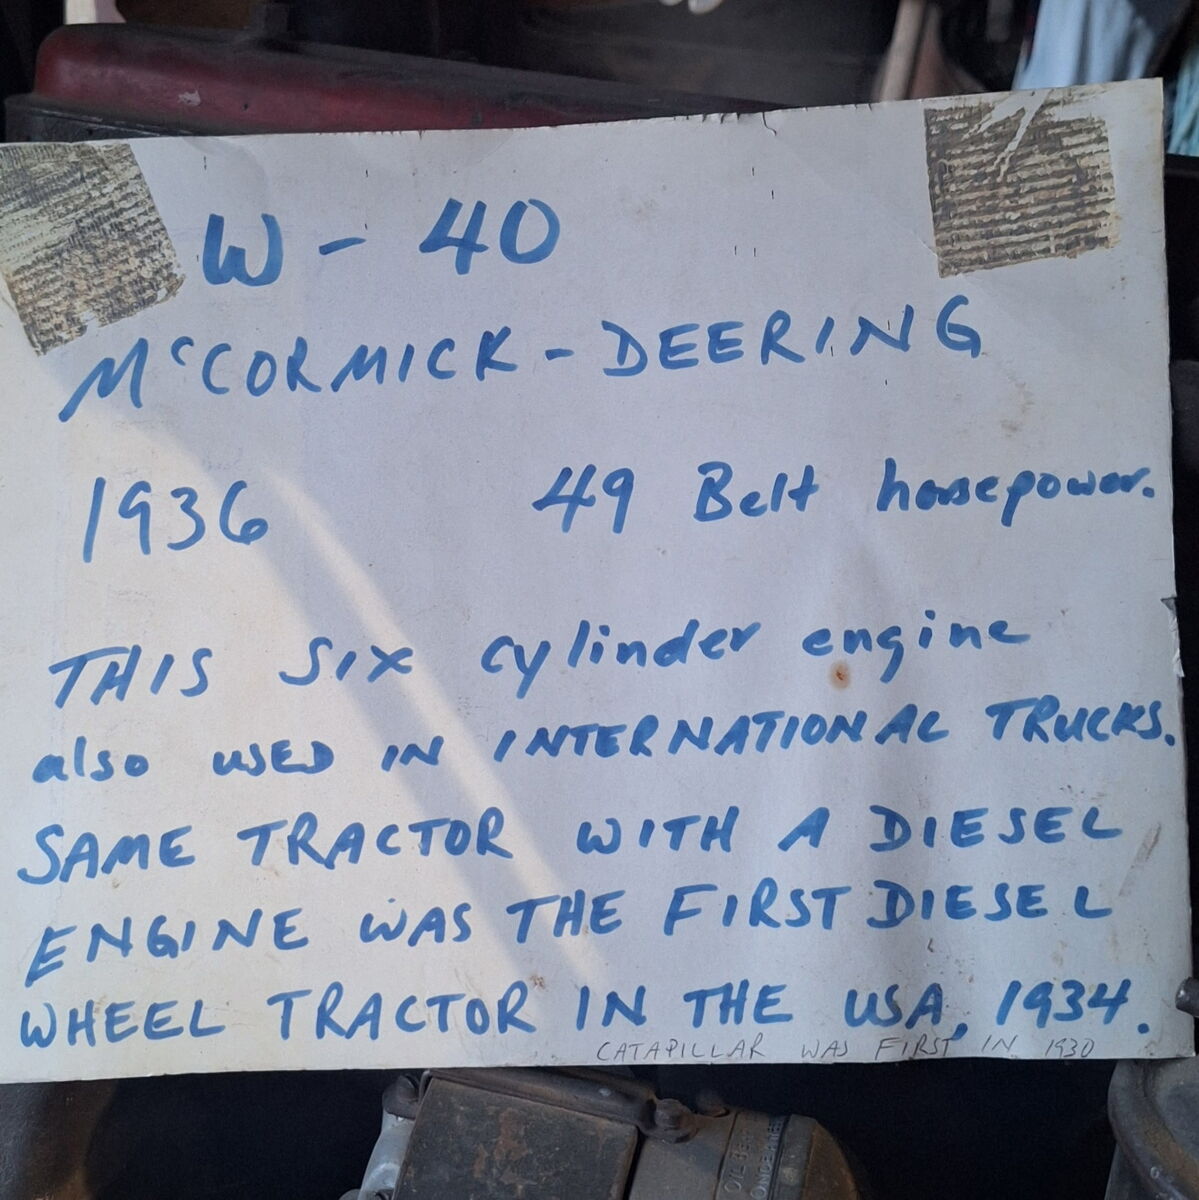 W - 40
McCORMICK - DEERING
1936 49 Belt horsepower.
THIS SIX cylinder engine
also USED IN INTERNATIONAL TRUCKS.
SAME TRACTOR WITH A DIESEL
ENGINE WAS THE FIRST DIESEL
WHEEL TRACTOR IN THE USA, 1934.
CATAPILLAR WAS FIRST IN 1930